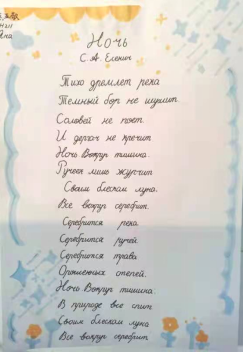 Ночь
С. А. Есенич
Тихо дремлет река
Темный бор не шумит.
Соловей не поет.
И дергач не кричит
Ночь Вокруг тишина.
Ручеек лишь журчит
Своим блеском луна.
Все вокруг серебрит.
Серебрится река.
Серебрится ручей.
Серебрится трава
Орошенных степей.
Ночь Вокруг тишина.
В природе все спит.
Своим блеском луна
Все вокруг серебрит